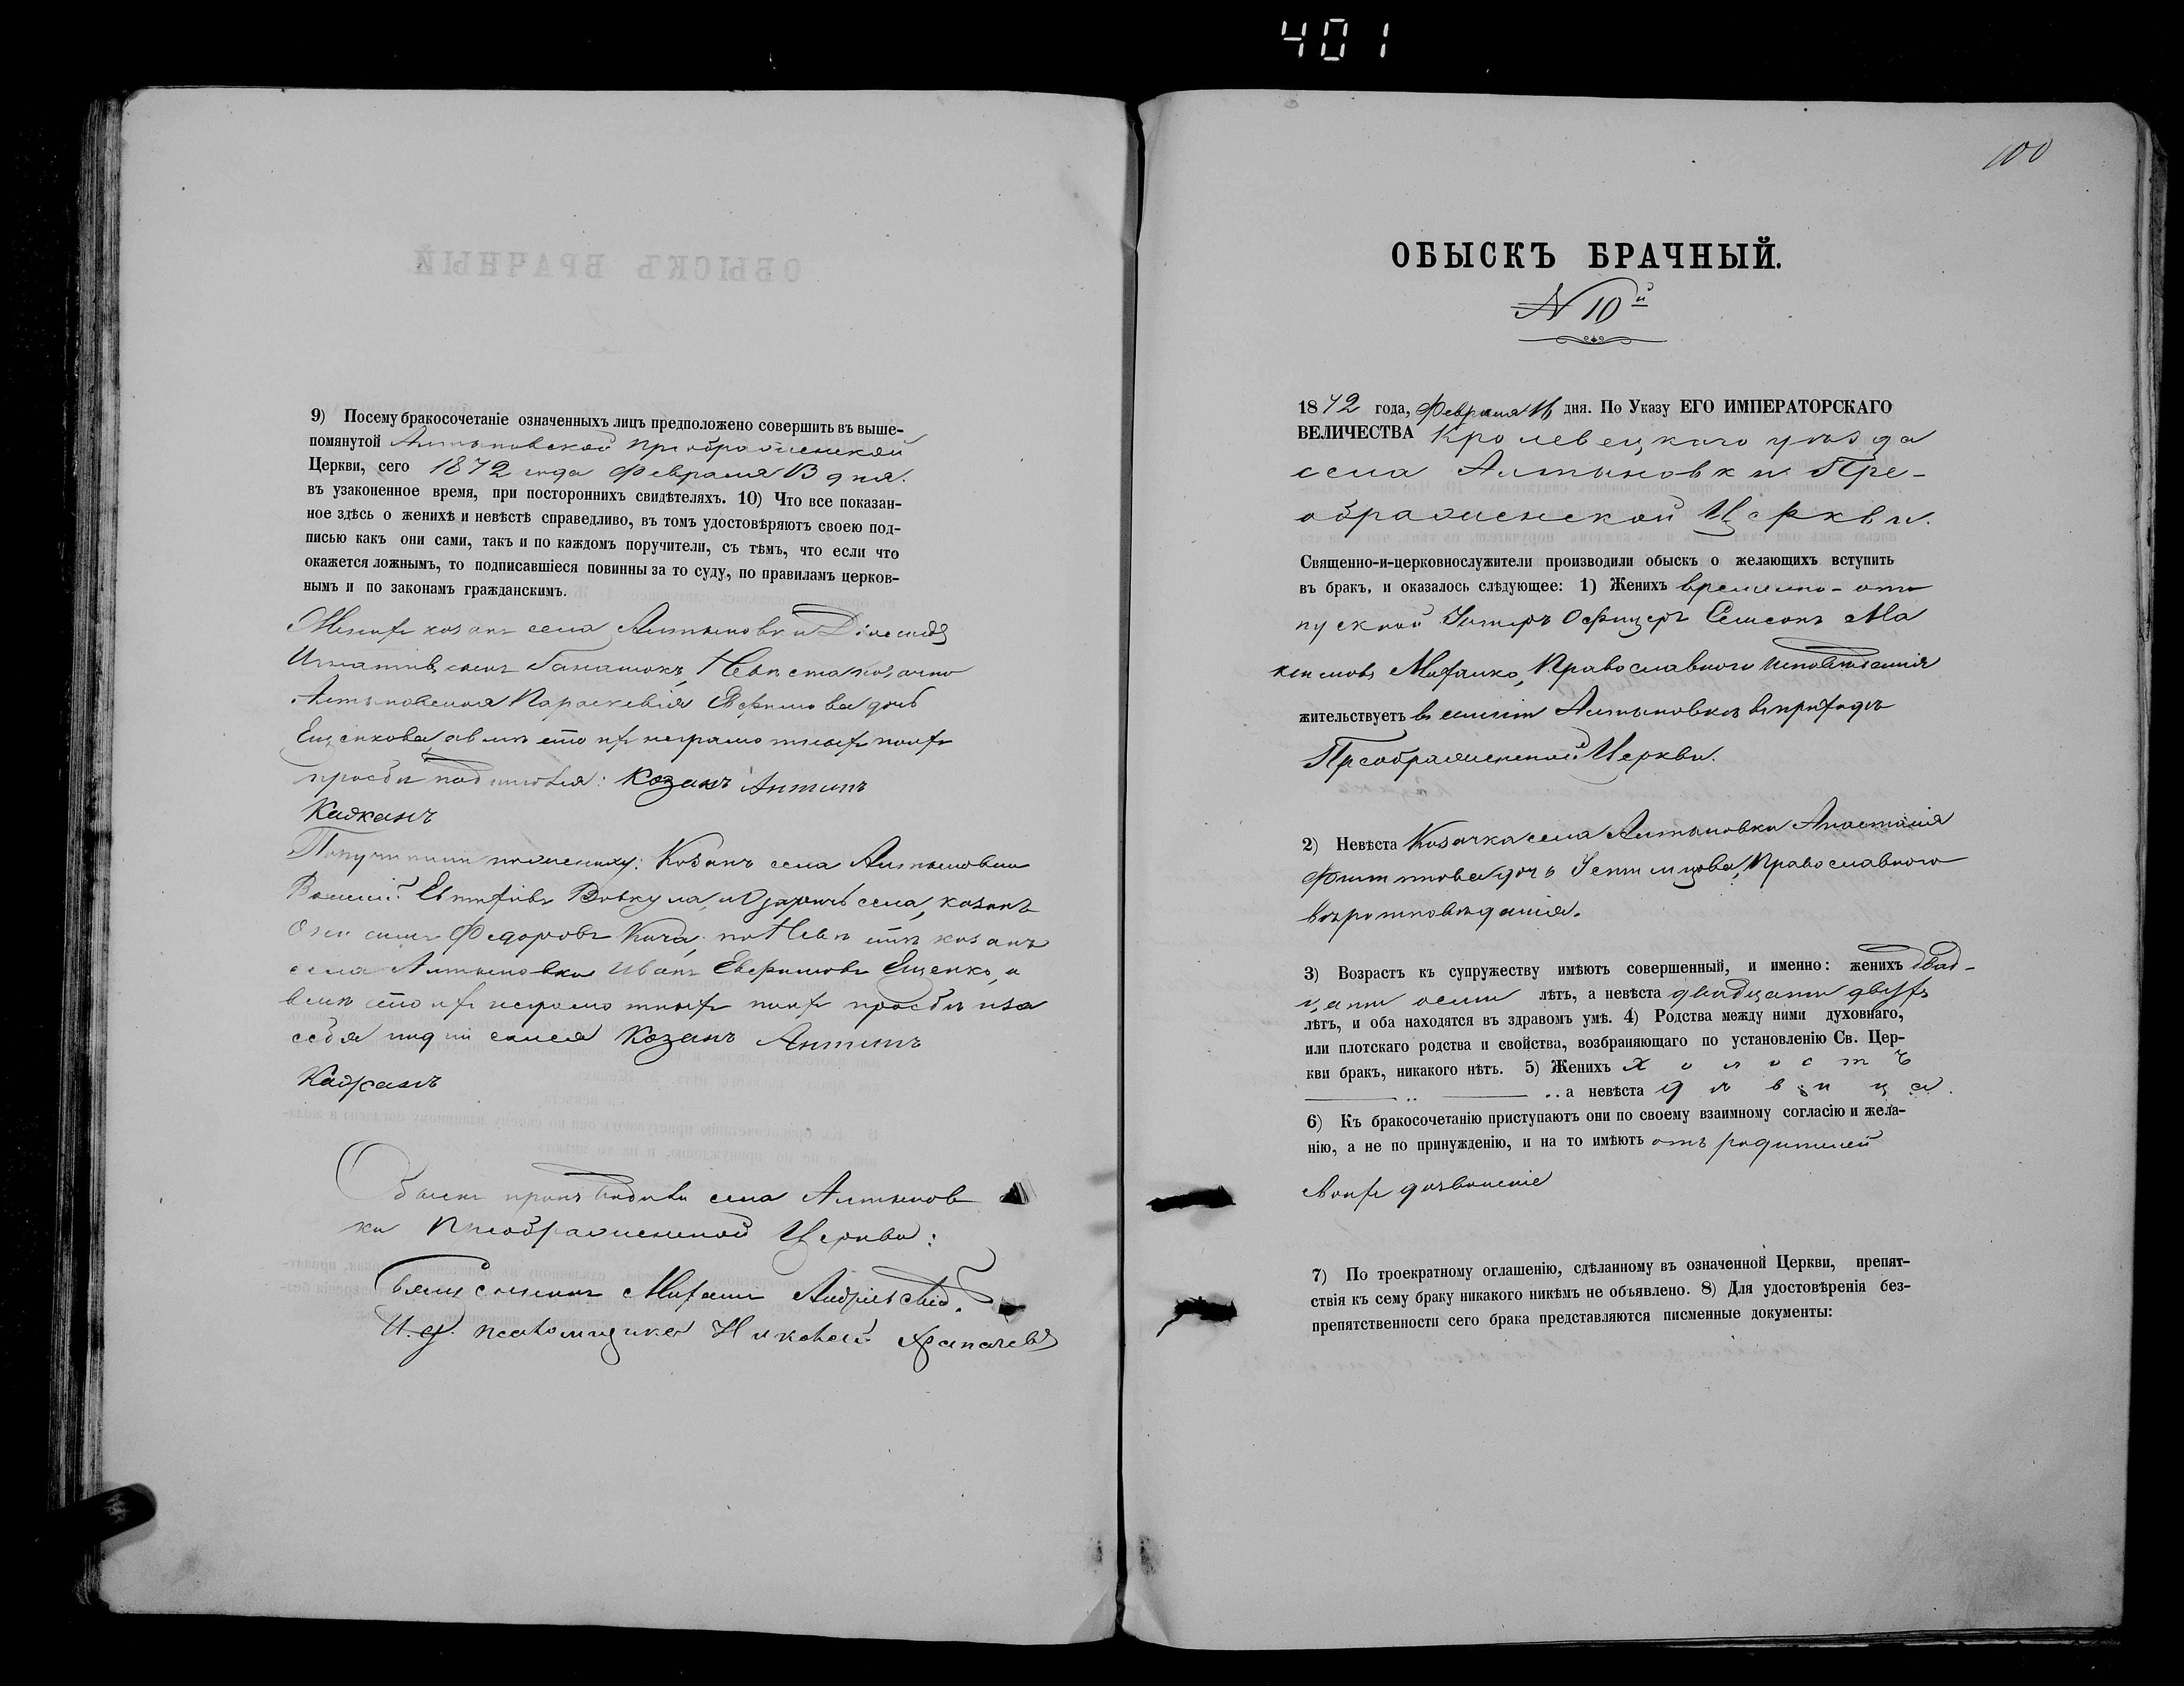 401
9) Посему бракосочетаніе означенныхъ лицъ предположено совершить въ выше-
помянутой Алтыновской Преображенской
Церкви, сего 1872 года Февраля 13 дня.
въ узаконенное время, при постороннихъ свидѣтеляхъ. 10) Что все показан-
ное здѣсь о женихѣ и невѣстѣ справедливо, въ томъ удостовѣряютъ своею под-
писью какъ они сами, такъ и по каждомъ поручители, съ тѣмъ, что если что
окажется ложнымъ, то подписавшіеся повинны за то суду, по правиламъ церков-
нымъ и по законамъ гражданскимъ.
Женихъ козакъ села Алтыновки Діомидъ
Игнатіевъ сынъ Невѣста козачка
Алтыновская Параскевія Евфимова дочь
Ещенкова, а вмѣсто ихъ неграмотныхъ по ихъ
просьбѣ подписался: Козакъ Антипъ
Кадканъ
Поручители по женихѣ: Козакъ села Алтыновки
Василій Евтифіевъ Вовкула, и села, козакъ
Федоровъ Кача, по Невѣстѣ козакъ
села Алтыновки Иванъ Евфимовъ Ещенко, а
вмѣсто ихъ неграмотныхъ по ихъ просьбѣ и за
себя подписался Козакъ Антипъ
Кадканъ
Обыскъ производили села Алтынов
ки Преображенской Церкви:
Священникъ
И. д. псаломщика Николай
100
ОБЫСКЪ БРАЧНЫЙ.
N 10й
1872 года, Февраля 11 дня. По Указу ЕГО ИМПЕРАТОРСКАГО
ВЕЛИЧЕСТВА Кролевецкаго уѣзда
села Алтыновки Пре-
ображенской Церкви.
Священно-и-церковнослужители производили обыскъ о желающихъ вступить
въ бракъ, и оказалось слѣдующее: 1) Женихъ временно-отп
пускной Унтеръ Офицеръ Семенъ Ма
ксимовъ Михалко, Православнаго исповѣданія
жительствуетъ въ селѣ Алтыновкѣ въ приходѣ
Преображенской Церкви.
2) Невѣста Козачка села Алтыновки Анастасія
Филиппова дочь Православнаго
вѣроисповѣданія.
3) Возрастъ къ супружеству имѣютъ совершенный, и именно: женихъ двад-
цати осми лѣтъ, а невѣста двадцати двухъ
лѣтъ, и оба находятся въ здравомъ умѣ. 4) Родства между ними духовнаго,
или плотскаго родства и свойства, возбраняющаго по установленію Св. Цер-
кви бракъ, никакого нѣтъ. 5) Женихъ холостъ
а невѣста дѣвица.
6) Къ бракосочетанію приступаютъ они по своему взаимному согласію и жела-
нію, а не по принужденію, и на то имѣютъ отъ родителей
своихъ дозволеніе
7) По троекратному оглашенію, сдѣланному въ означенной Церкви, препят-
ствія къ сему браку никакого никѣмъ не объявлено. 8) Для удостовѣренія без-
препятственности сего брака представляются писменные документы: